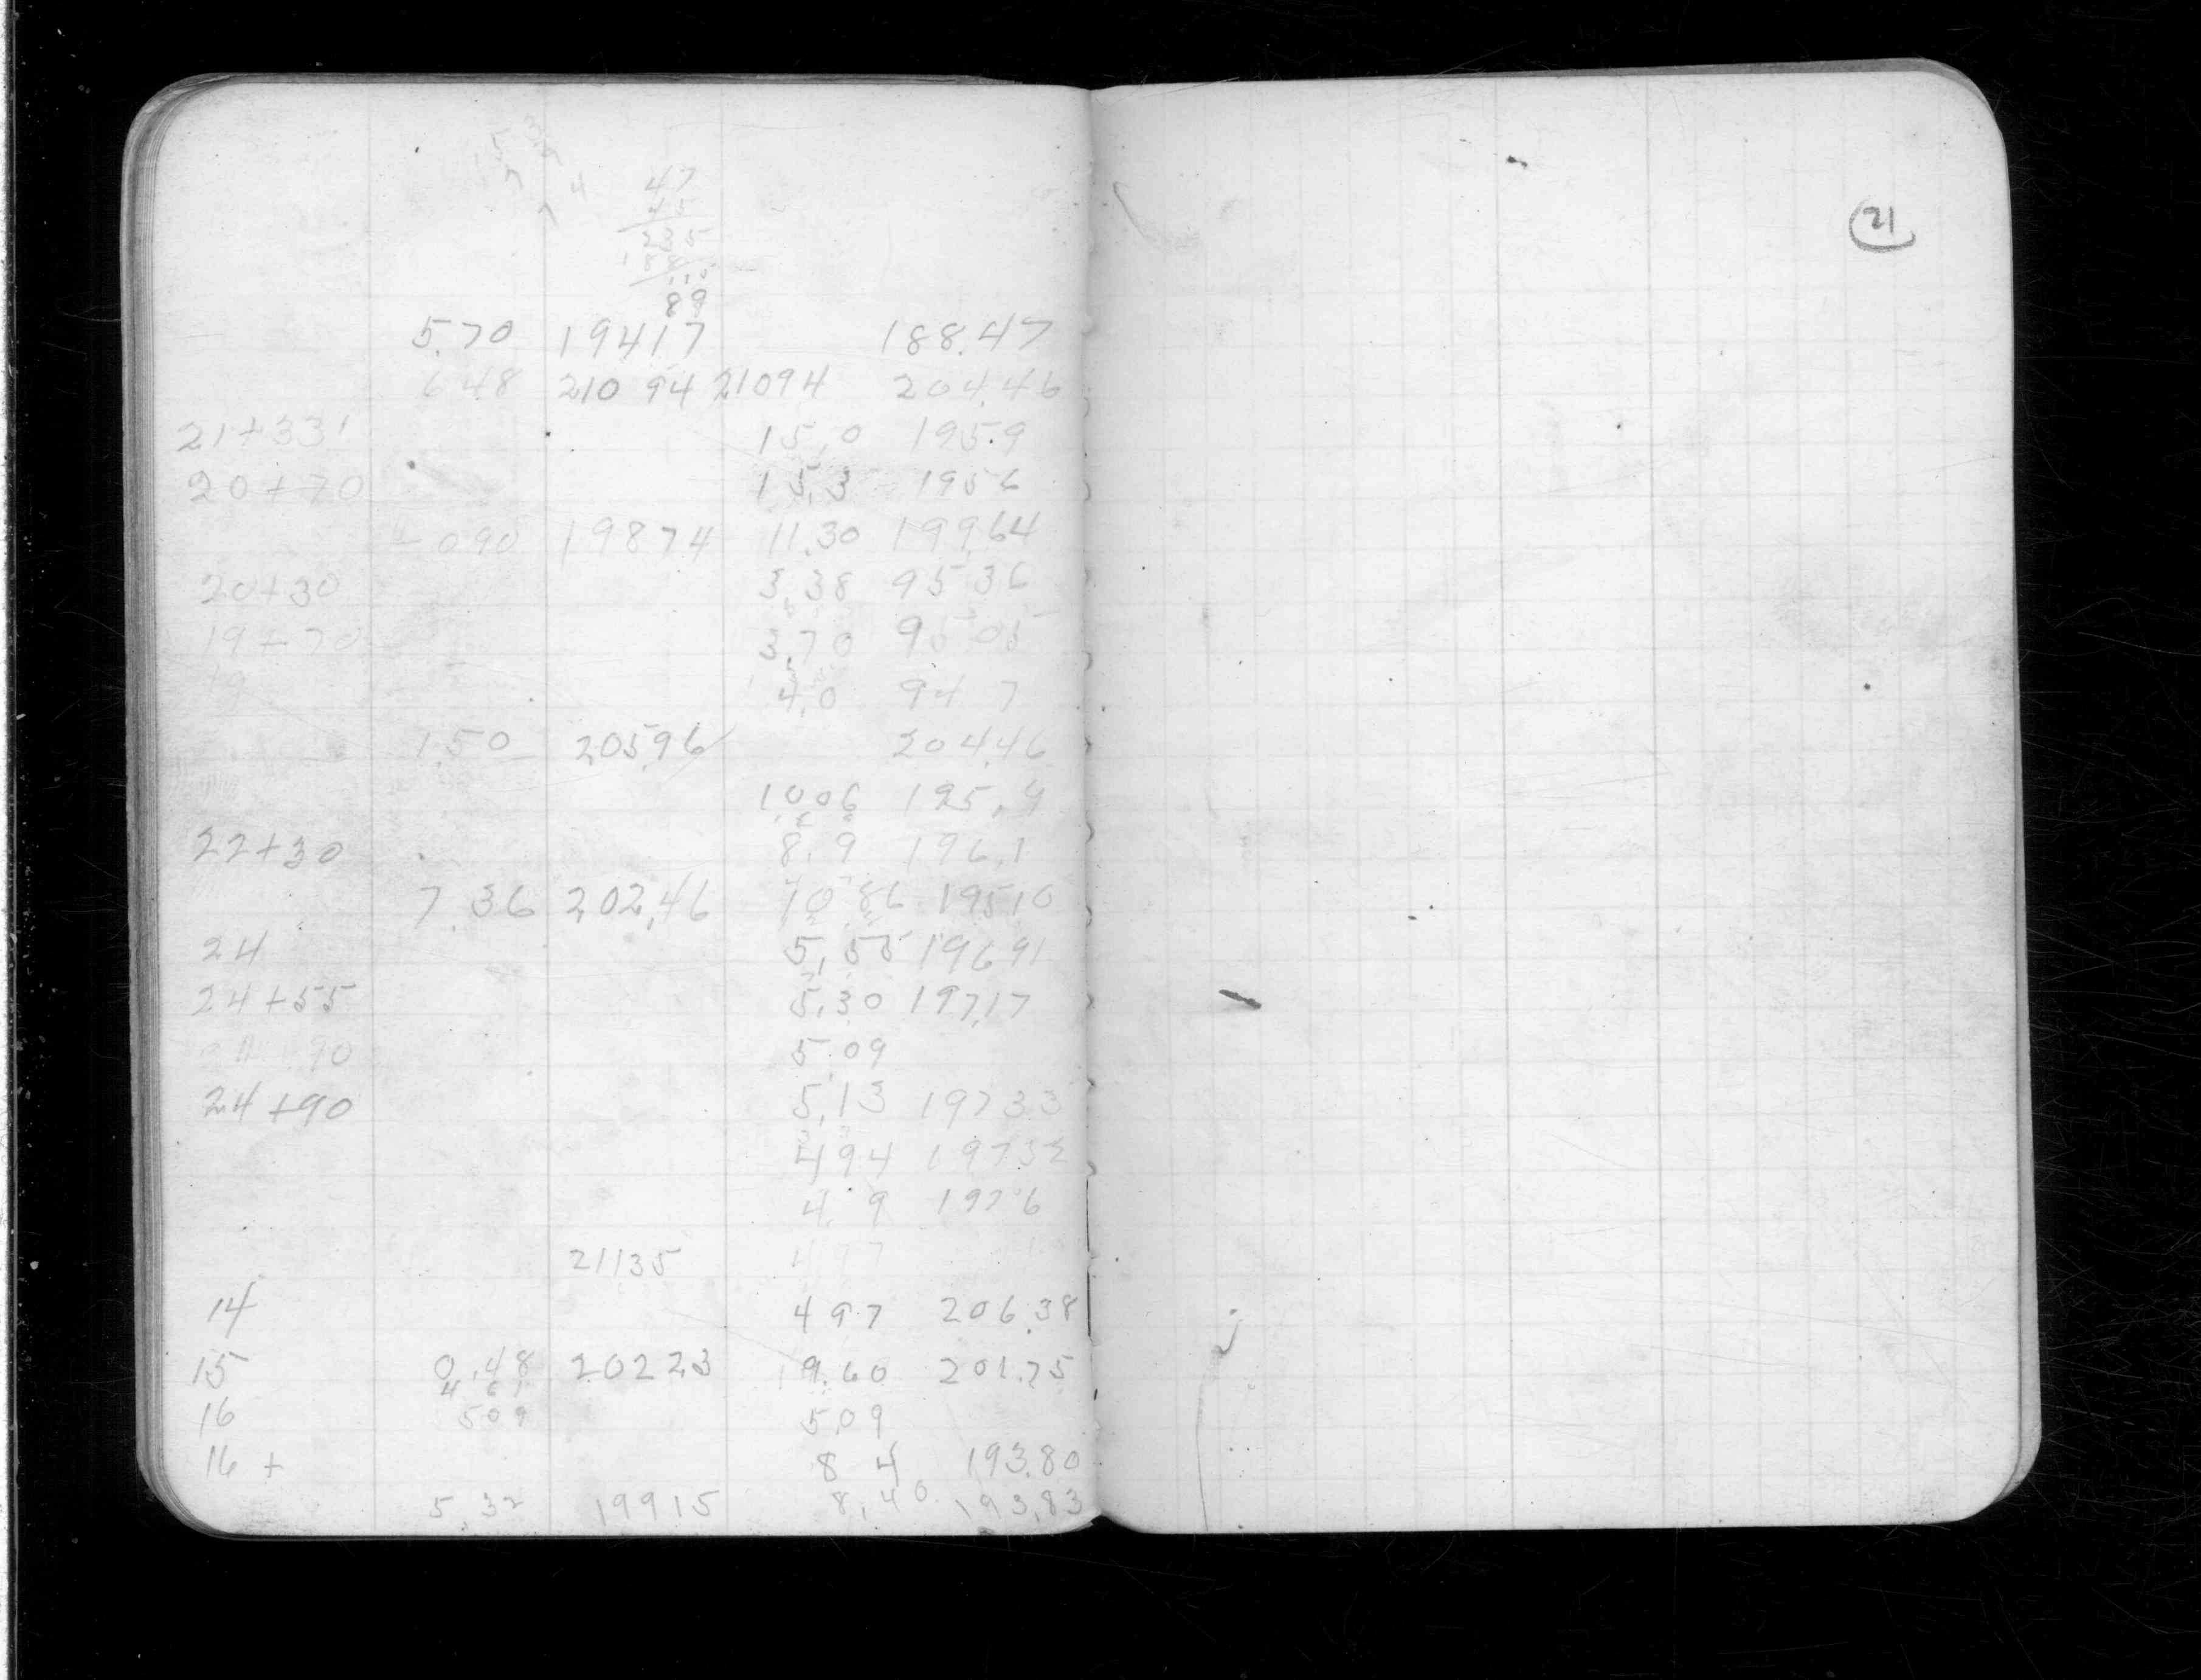 47
45
235
188
89
5.70 19417 188.47
6.48 210 94 21094 204.46
21+331 15.0 195.9
20+70 15.3 195 6
090 19874 11.30 199.64
20+30 3.38 95 36
19+70 3.70 95 05
19 4.0 94 7
1.50 205.96 204.46
10.06 195.9
22+30 8.9 196.1
7.36 202.46 10 86 195 10
24 5.55 196 91
24+55 5.30 197.17
" 90 5.09
24+90 5.13 197 33
4 94 197 32
4.9 197 6
21135 4 97
14 4 97 206.38
15 0.48 20223 9.60 201.75
16 509 5.09
16 + 8 4 193.80
5.32 19915 8.40 193.83
21